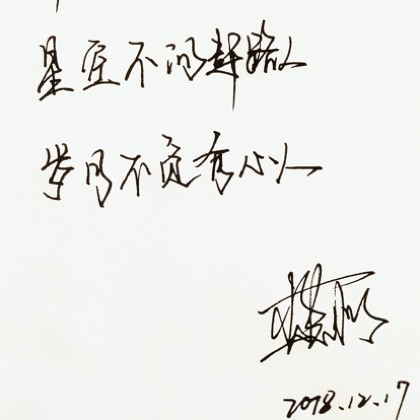 星臣不问赶路人
岁月不负有心人
2018.12.17